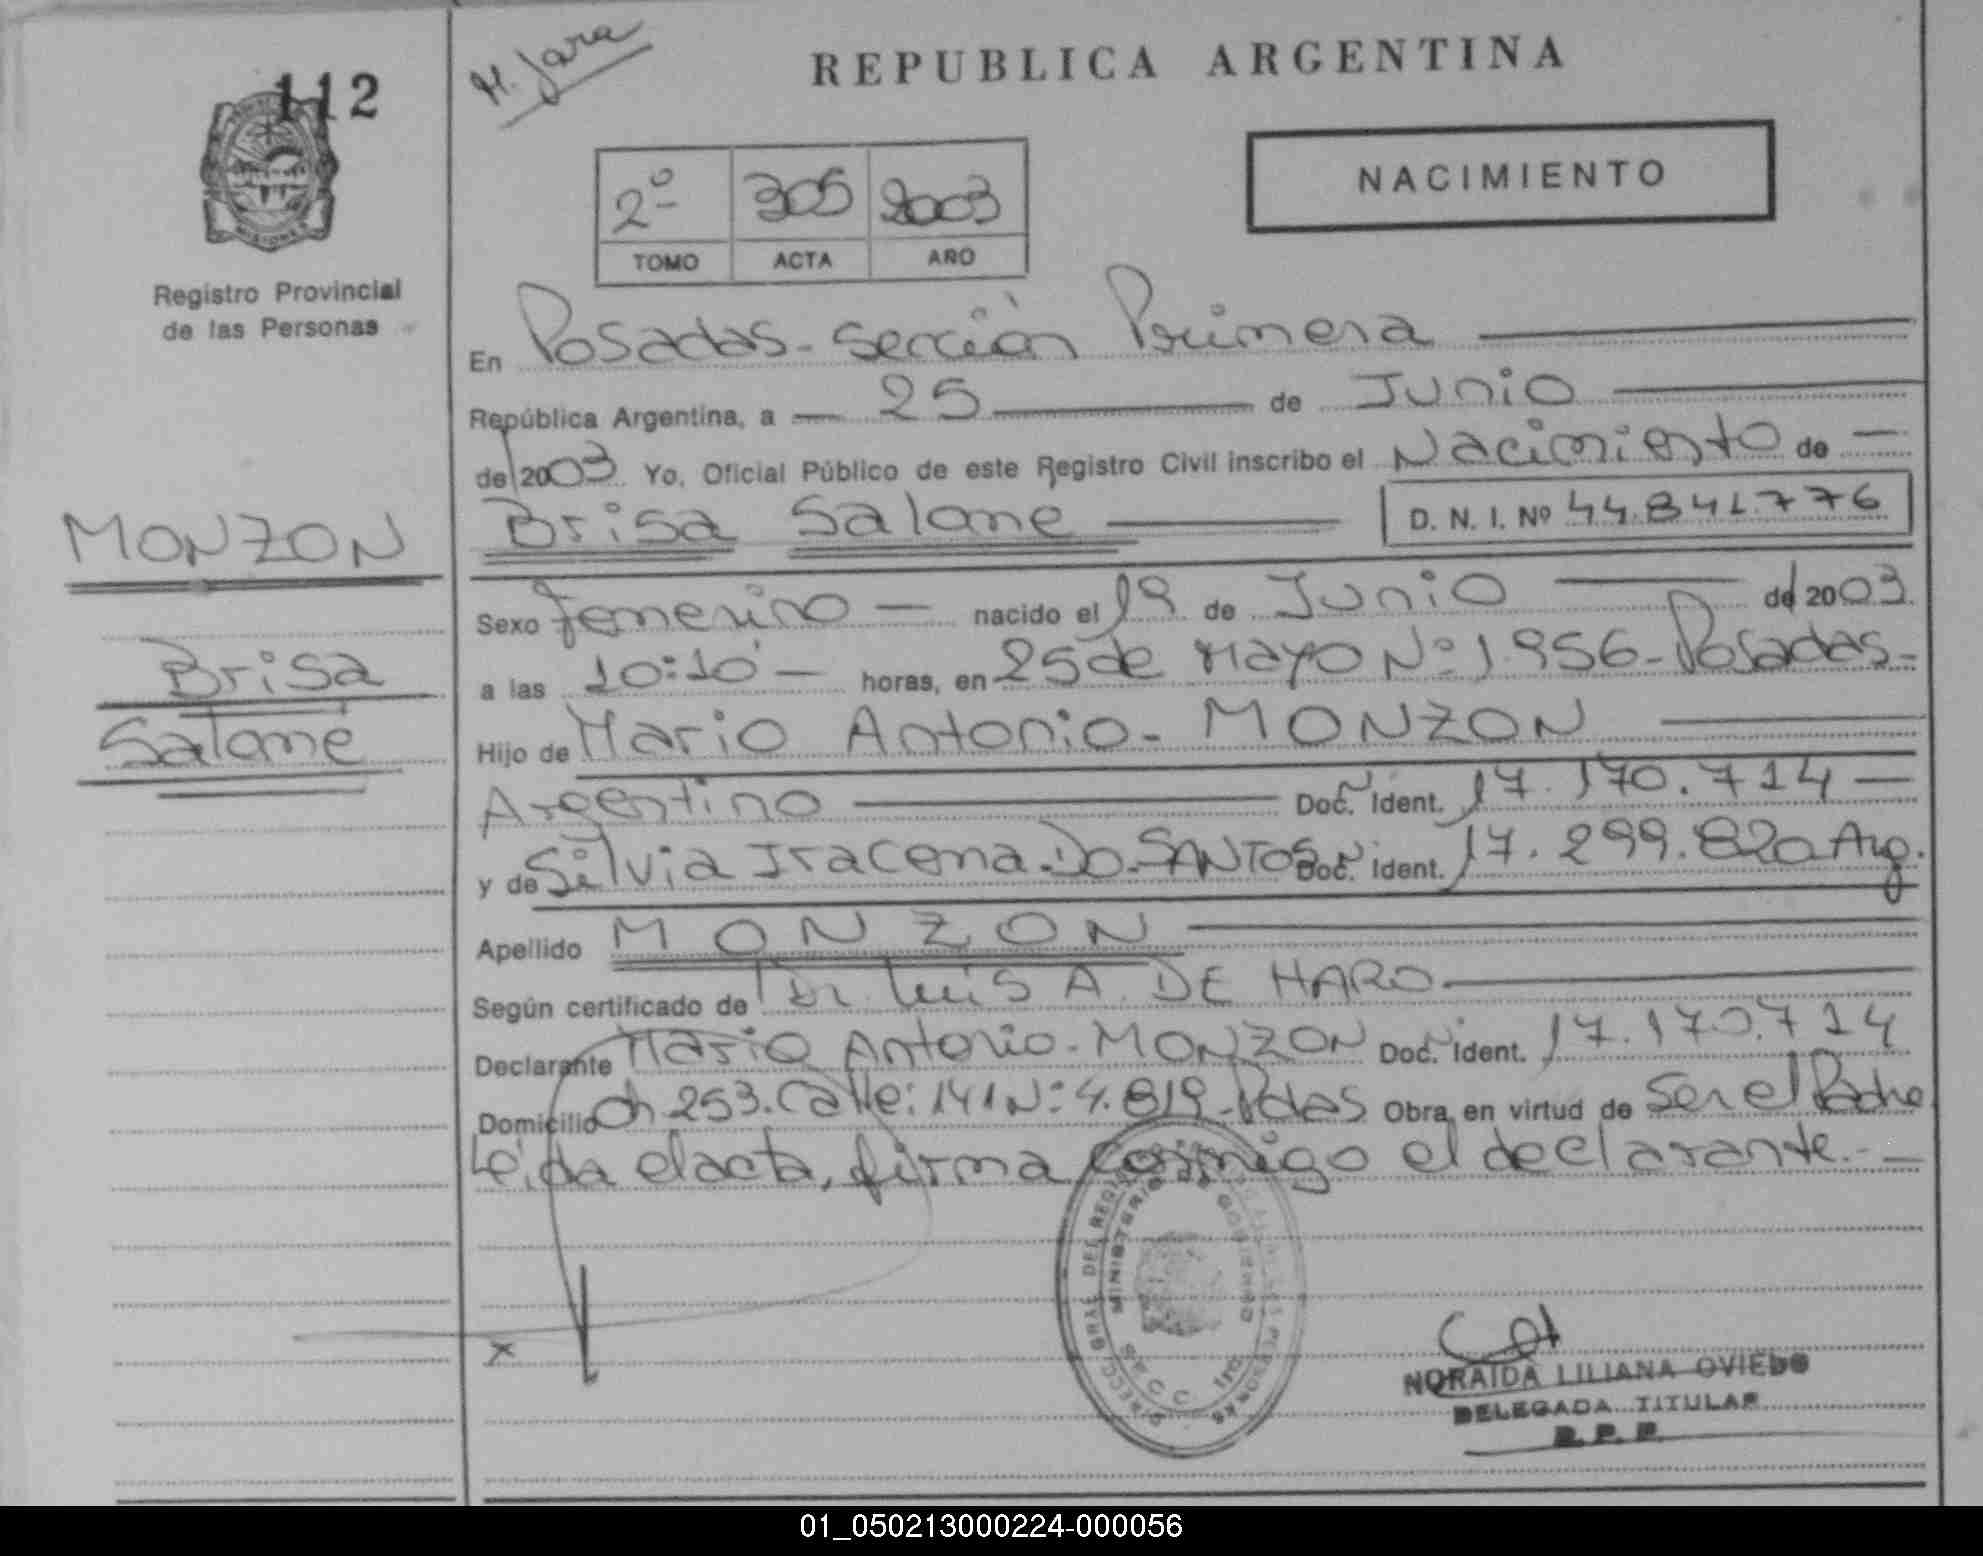 112
Registro Provincial
de las Personas
MONZON
Brisa
Salomé
H. Jara
REPUBLICA ARGENTINA
NACIMIENTO
2º 305 2003
TOMO ACTA AÑO
En Posadas - Sección Primera
República Argentina, a 25 de Junio
de 2003 Yo, Oficial Público de este Registro Civil inscribo el Nacimiento de
Brisa Salomé D. N. I. Nº 44.841.776
Sexo femenino nacido el 19 de Junio de 2003
a las 10:10 horas, en 25 de Mayo Nº 1.956 - Posadas -
Hijo de Mario Antonio - MONZON
Argentino Doc. Ident. 17.170.714
y de Silvia Iracema - DO - SANTOS Doc. Ident. 17.299.820 Arg.
Apellido MONZON
Según certificado de Dr. Luis A. DE HARO
Declarante Mario Antonio - MONZON Doc. Ident. 17.170.714
Domicilio Ch 253. Calle: 141 Nº 4.819 - Pdas Obra en virtud de Ser el Padre
Leida el acta, firma conmigo el declarante. -
MINISTERIO DE GOBIERNO
x
NORAIDA LILIANA OVIEDO
DELEGADA TITULAR
R. P. P.
01_050213000224-000056